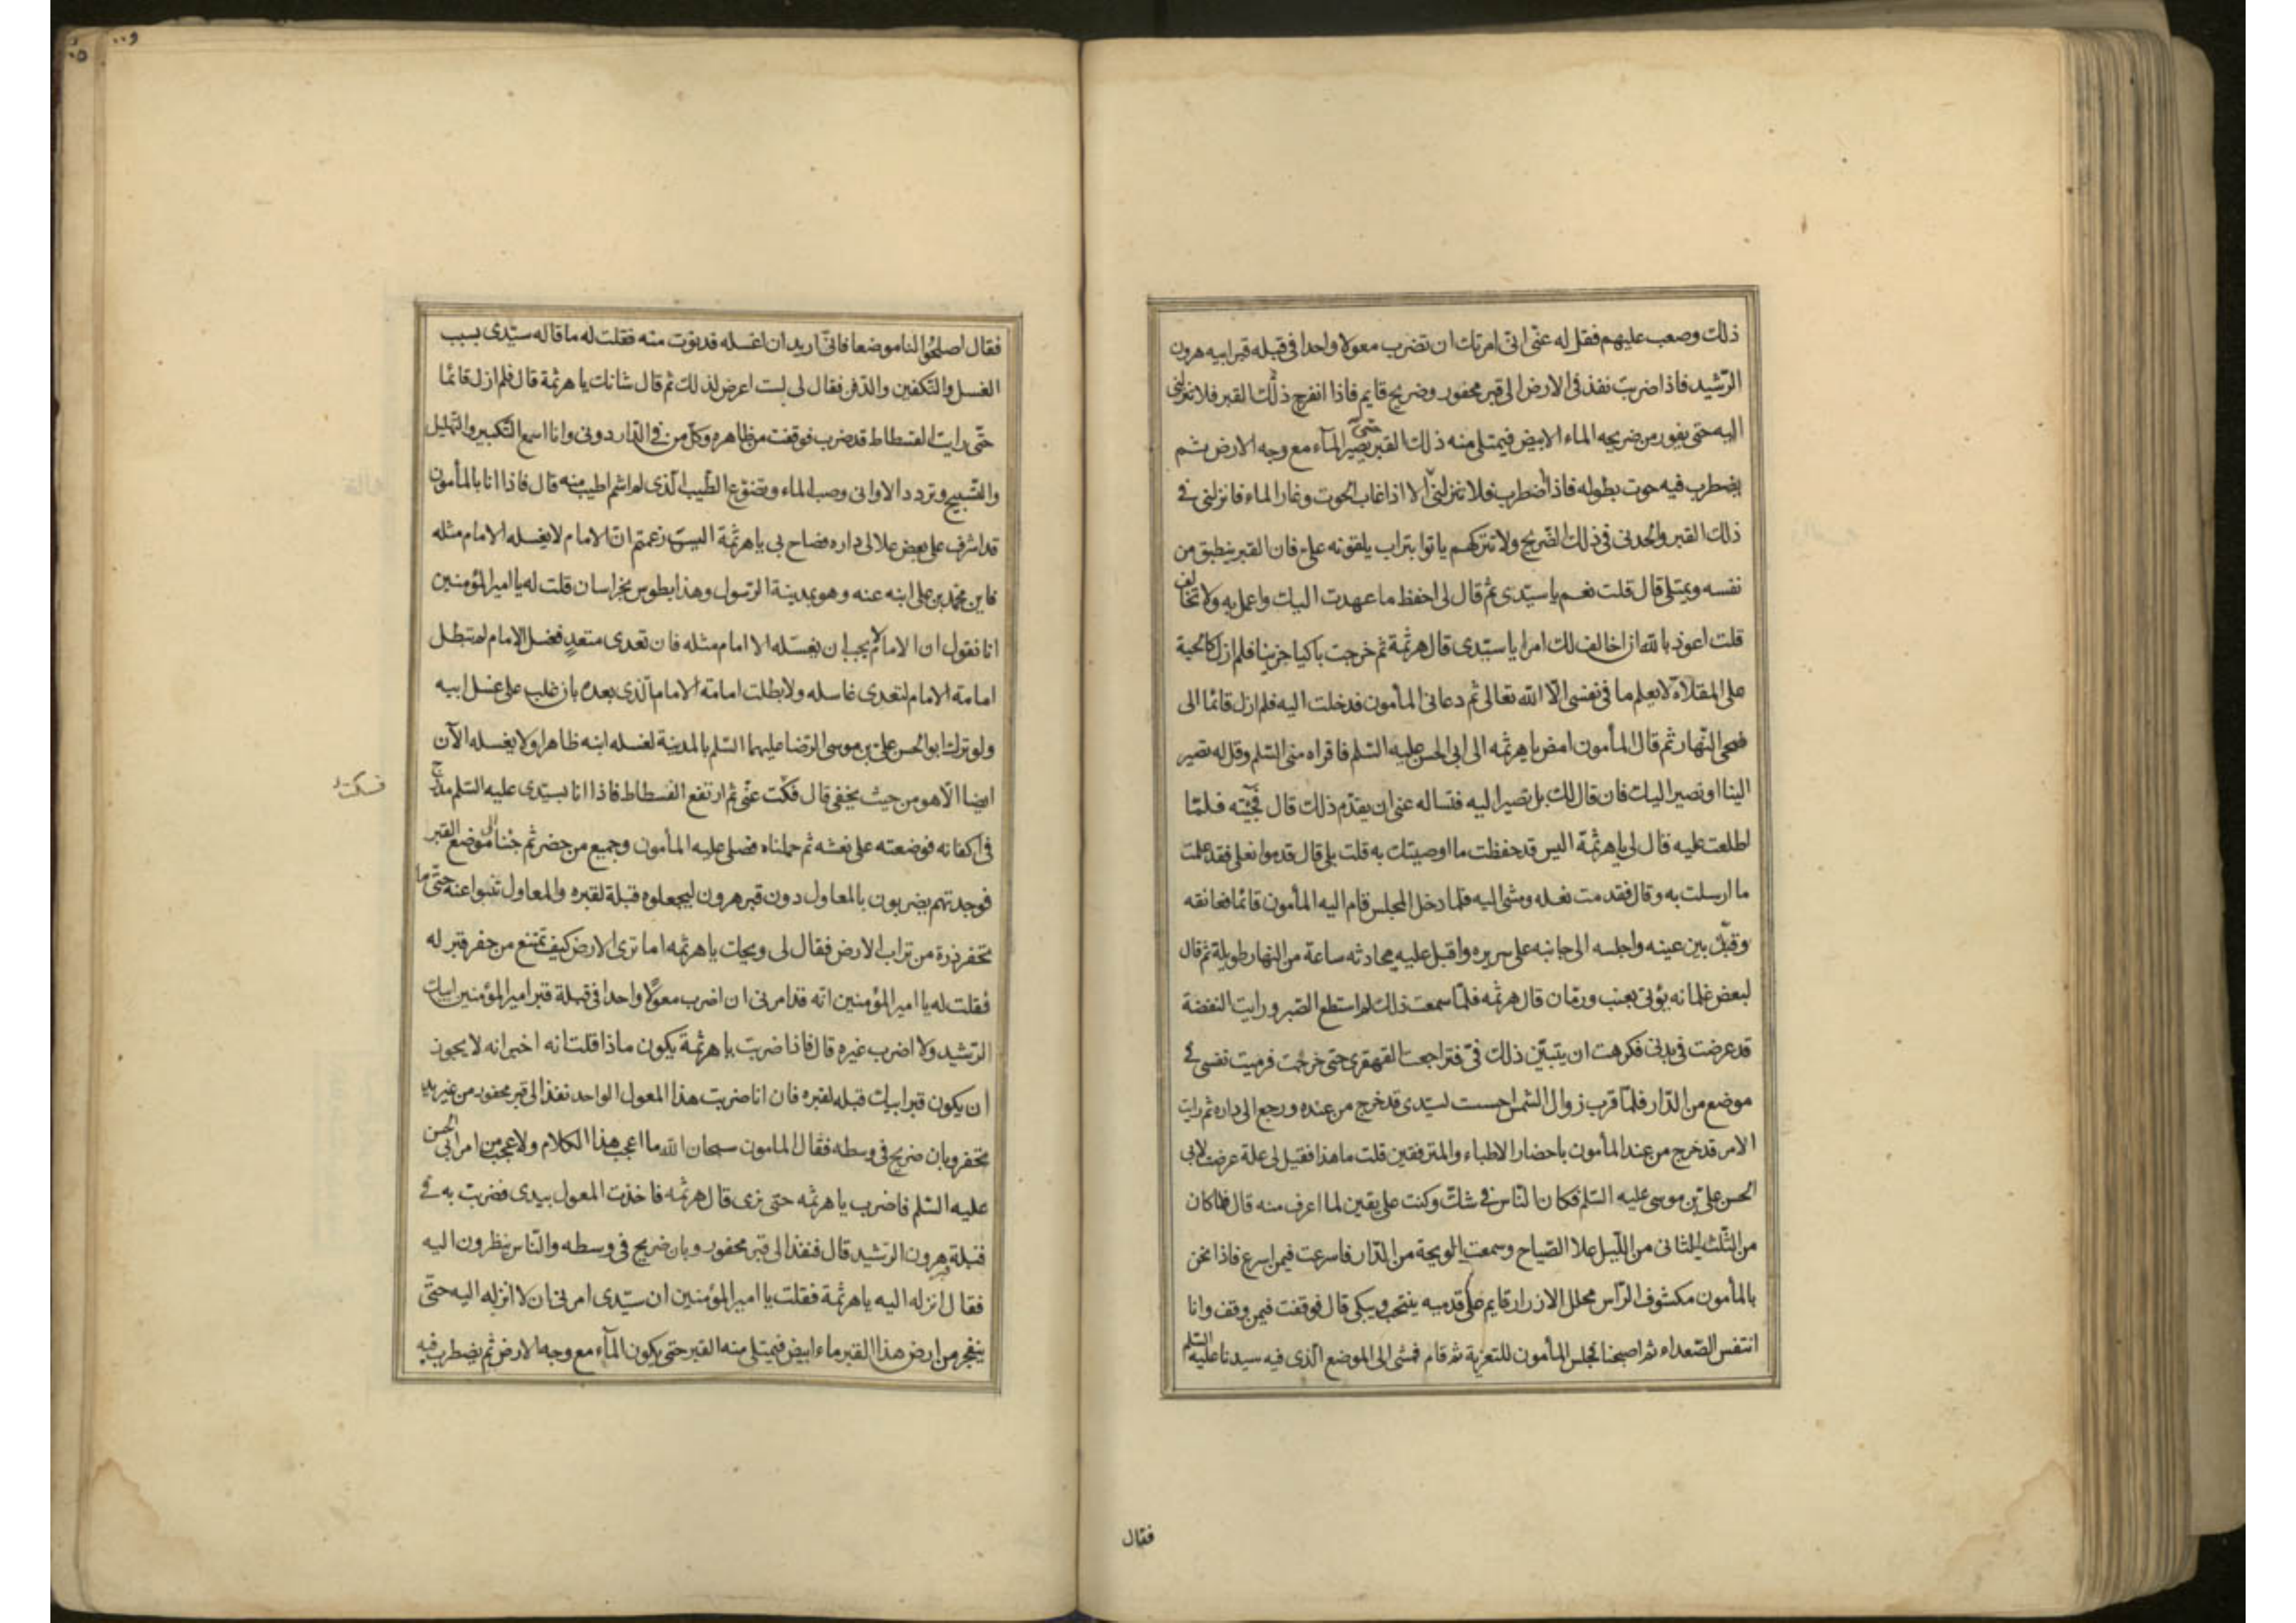 ذلك وصعب عليهم فقل له عنّى انّى امرتك ان تضرب معولا واحدا فى قبله قبر ابيه هرون
الرّشيد فاذا ضربت نفذ فى الارض الى قبر محفور وضريح قايم فاذا انفرج ذلك القبر فلا تنزلنى
اليه حتى يفور من ضريحه الماء الابيض فيمتلى منه ذلك القبر حتى يصير المآء مع وجه الارض ثم
يضطرب فيه حوت بطوله فاذا اضطرب فلا تنزلنى الا اذا غاب الحوت وغار الماء فانزلنى فى
ذلك القبر والحدنى فى ذلك الضّريح ولا تتركهم ياتوا بتراب يلقونه علىّ فان القبر ينطبق من
نفسه ويمتلى قال قلت نعم يا سيّدى ثم قال لى احفظ ما عهدت اليك واعمل به ولا تخالف
قلت اعوذ بالله ان اخالف لك امرا يا سيّدى قال هرثمة ثم خرجت باكيا حزينا فلم ازل كالحبة
على المقلاة لا يعلم ما فى نفسى الّا الله تعالى ثم دعانى المأمون فدخلت اليه فلم ازل قائما الى
ضحى النّهار ثم قال المأمون امض يا هرثمه الى ابى الحسن عليه السّلم فاقراه منى السّلم وقل له تصير
الينا او نصير اليك فان قال لك بل نصير اليه فتساله عنى ان يقدّم ذلك قال فجئته فلمّا
اطلعت عليه قال لى يا هرثمة اليس قد حفظت ما اوصيتك به قلت بلى قال قدموا نعلى فقد علمت
ما ارسلت به وقال فقدمت نعله ومشى اليه فلما دخل المجلس قام اليه المأمون قائما فعانقه
وقبّل بين عينه واجلسه الى جانبه على سريره واقبل عليه يحادثه ساعة من النهار طويلة ثم قال
لبعض غلمانه يؤتى بعنب ورمّان قال هرثمه فلمّا سمعت ذلك لم استطع الصّبر ورايت النفضة
قد عرضت فى بدنى فكرهت ان يتبيّن ذلك فىّ فتراجعت القهقرى حتى خرجت فرميت نفسى فى
موضع من الدّار فلمّا قرب زوال الشمس احسست لسيّدى قد خرج من عنده ورجع الى داره ثم رايت
الامر قد خرج من عند المأمون باحضار الاطباء والمترفقين قلت ما هذا فقيل لى علة عرضت لابى
الحسن علىّ بن موسى عليه السّلم فكان النّاس فى شكّ وكنت على يقين لما اعرف منه قال فلما كان
من الثّلث الثانى من اللّيل علا الصّياح وسمعت الويحة من الدّار فاسرعت فيمن اسرع فاذا نحن
بالمأمون مكشوف الرّاس محلل الازرار قايم على قدميه ينتحب ويبكى قال فوقفت فيمن وقف وانا
انتفس الصّعداء ثم اصبحنا فجلس المأمون للتعزية ثم قام فمشى الى الموضع الّذى فيه سيدنا عليه السّلم
فقال
فقال اصلحوا لنا موضعا فانّى اريد ان اغسله فدنوت منه فقلت له ما قاله سيّدى بسبب
الغسل والتّكفين والدّفن فقال لى لست اعرض لذلك ثم قال شانك يا هرثمة قال فلم ازل قائما
حتّى رايت الفسطاط قد ضرب فوقفت من ظاهره وكلّ من فى الدّار دونى وانا اسمع التّكبير والتّهليل
والتّسبيح وتردد الاوانى وصب الماء وتضوّع الطّيب الّذى لم اشم اطيب منه قال فاذا انا بالمأمون
قد اشرف على بعض علالى داره فصاح بى يا هرثمة اليس زعمتم انّ الامام لا يغسله الا امام مثله
فاين محمد بن على ابنه عنه وهو بمدينة الرّسول وهذا بطوس بخراسان قلت له يا امير المؤمنين
انا نقول ان الامام لا يجب ان يغسّله الا امام مثله فان تعدى متعدٍ فغسل الامام لم تبطل
امامة الامام لتعدى غاسله ولا بطلت امامة الامام الّذى بعده بان غلب على غسل ابيه
ولو ترك ابو الحسن علىّ بن موسى الرّضا عليهما السّلم بالمدينة لغسله ابنه ظاهرا ولا يغسله الآن
ايضا الّا هو من حيث يخفى قال فكّت عنّى ثم ارتفع الفسطاط فاذا انا بسيّدى عليه السّلم مدرج
فسكت
فى اكفانه فوضعته على نعشه ثم حملناه فصلى عليه المأمون وجميع من حضر ثم جئنا الى موضع القبر
فوجدتهم يضربون بالمعاول دون قبر هرون ليجعلوه قبلة لقبره والمعاول تنبوا عنه حتّى ما
تحفر ذرة من تراب الارض فقال لى ويحك يا هرثمه اما ترى الارض كيف تمتنع من حفر قبر له
فقلت له يا امير المؤمنين انّه قد امرنى ان اضرب معولًا واحدا فى قبلة قبر امير المؤمنين ابيك
الرّشيد ولا اضرب غيره قال فاذا ضربت يا هرثمة يكون ماذا قلت انه اخبر انه لا يجوز
ان يكون قبر ابيك قبله لقبره فان انا ضربت هذا المعول الواحد نفذ الى قبر محفور من غير يد
تحفر وبان ضريح فى وسطه فقال المامون سبحان الله ما اعجب هذا الكلام ولا عجب من امر ابى الحسن
عليه السّلم فاضرب يا هرثمه حتى نرى قال هرثمه فاخذت المعول بيدى فضربت به فى
قبلة قبر هرون الرّشيد قال فنفذ الى قبر محفور وبان ضريح فى وسطه والنّاس ينظرون اليه
فقال انزله اليه يا هرثمة فقلت يا امير المؤمنين ان سيّدى امرنى ان لا انزله اليه حتّى
ينفجر من ارض هذا القبر ماء ابيض فيمتلى منه القبر حتى يكون المآء مع وجه الارض ثم يضطرب فيه